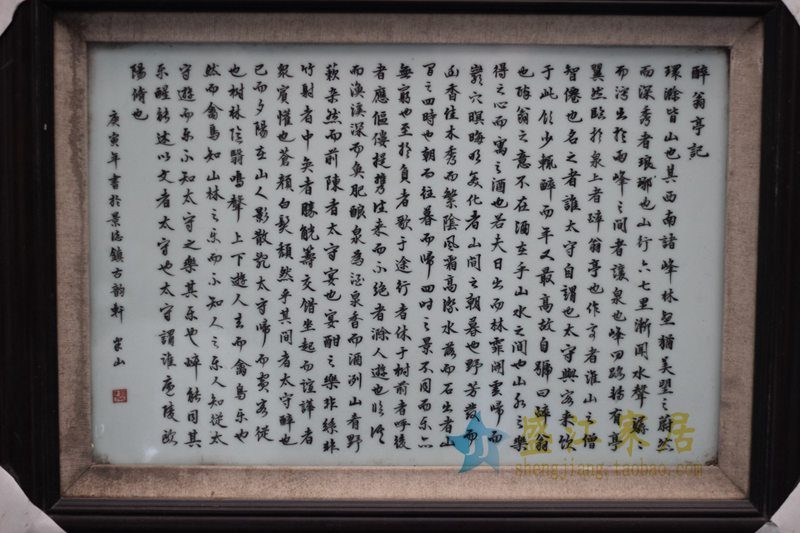 醉翁亭記
環滁皆山也其西南諸峰林壑猶美望之蔚然
而深秀者琅琊也山行六七里漸聞水聲潺潺
而瀉出於兩峰之間者讓泉也峰回路轉有亭
翼然臨於泉上者醉翁亭也作亭者誰山之僧
智僊也名之者誰太守自謂也太守與客来飲
于此飲少輒醉而年又最高故自號曰醉翁
也醉翁之意不在酒在乎山水之間也山水之樂
得之心而寓之酒也若夫日出而林霏開雲歸而
巖穴暝晦明變化者山間之朝暮也野芳發而
幽香佳木秀而繁陰風霜高潔水落而石出者山
間之四時也朝而往暮而歸四時之景不同而樂亦
無窮也至於負者歌于途行者休于樹前者呼後
者應傴僂提攜往来而不絕者滁人遊也臨溪
而漁溪深而魚肥釀泉為酒泉香而酒洌山肴野
蔌雜然而前陳者太守宴也宴酣之樂非絲非
竹射者中奕者勝觥籌交錯坐起而諠譁者
眾賓懽也蒼顏白髮頹然乎其間者太守醉也
已而夕陽在山人影散亂太守歸而賓客從
也樹林陰翳鳴聲上下遊人去而禽鳥樂也
然而禽鳥知山林之樂而不知人之樂人知從太
守遊而樂不知太守之樂其樂也醉能同其
樂醒能述以文者太守也太守謂誰廬陵歐
陽脩也
庚寅年書於景德鎮古韵軒
盛江家居
shengjiang.taobao.com